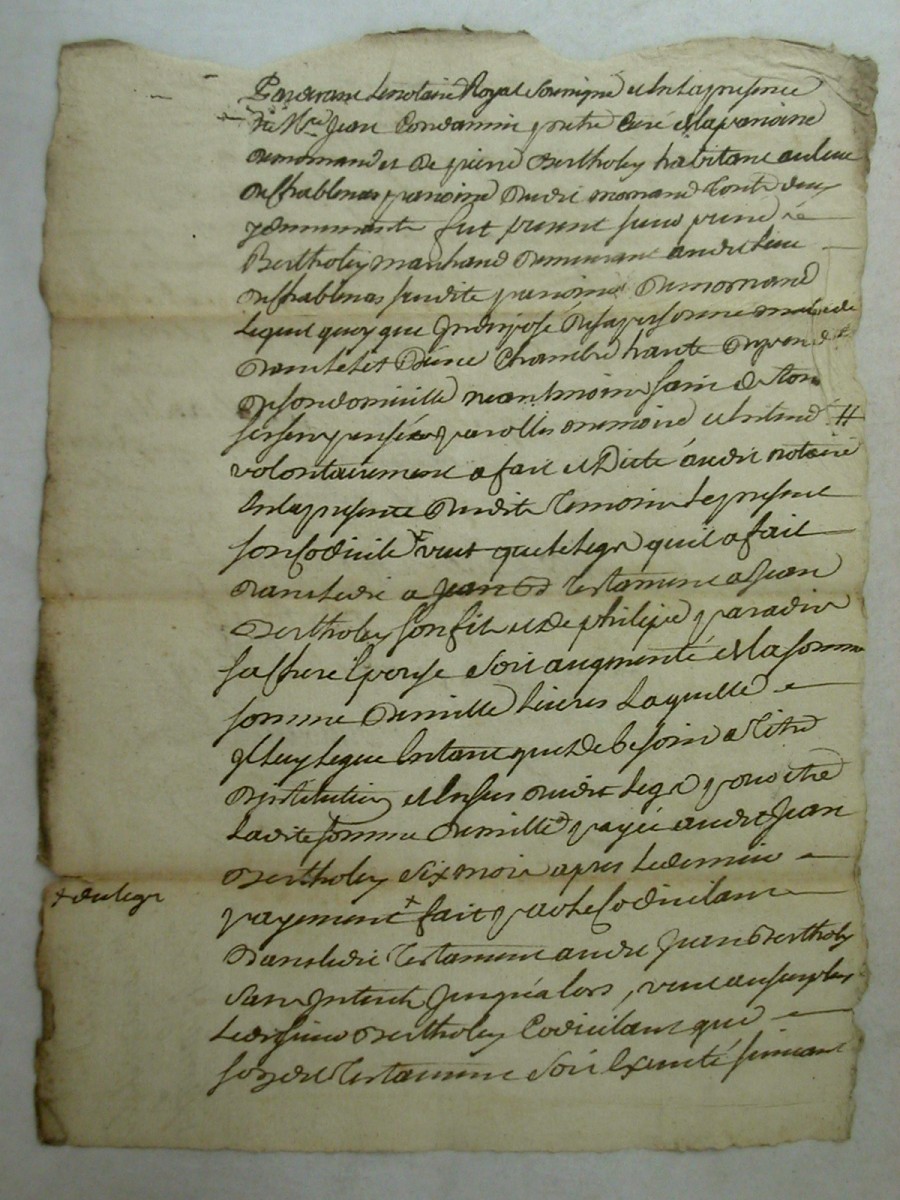 Pardevant Le notaire Royal soussigné et En la presence
de Mre Jean Condamin pretre Curé de la paroisse
de mornand et de pierre Bertholey habitant au lieu
paroisse dudit mornand
fut present sieur pierre
Bertholey marchand demeurant audit lieu
susdite paroisse de mornand
Lequel quoy que Indispose de sa personne
dans le lit d'une Chambre haute
de son domicille neantmoins sain de tous
ses sens pensées parolles memoire et Entend #
volontairement a fait et Dicté audit notaire
En la presence desdits temoins Le present
son Codicile + veut que le legs qu'il a fait
dans ledit a Jean Testament a Jean
Bertholey son fils et de philipe paradis
sa Epouse soit augmenté de la somme
somme de mille Livres Laquelle
il luy legue En tant que de besoin a titre
d'institution et En sus dudit Legs pour être
Ladite somme de mille payée audit Jean
Bertholey six mois apres le dernier
payement + fait par le Codicilant
dans ledit Testament audit Jean Bertholey
sans Interets Jusqu'a lors, veut au surplus
Ledit sieur Bertholey Codicilant que
sondit Testament soit Executé suivant
+ du legs